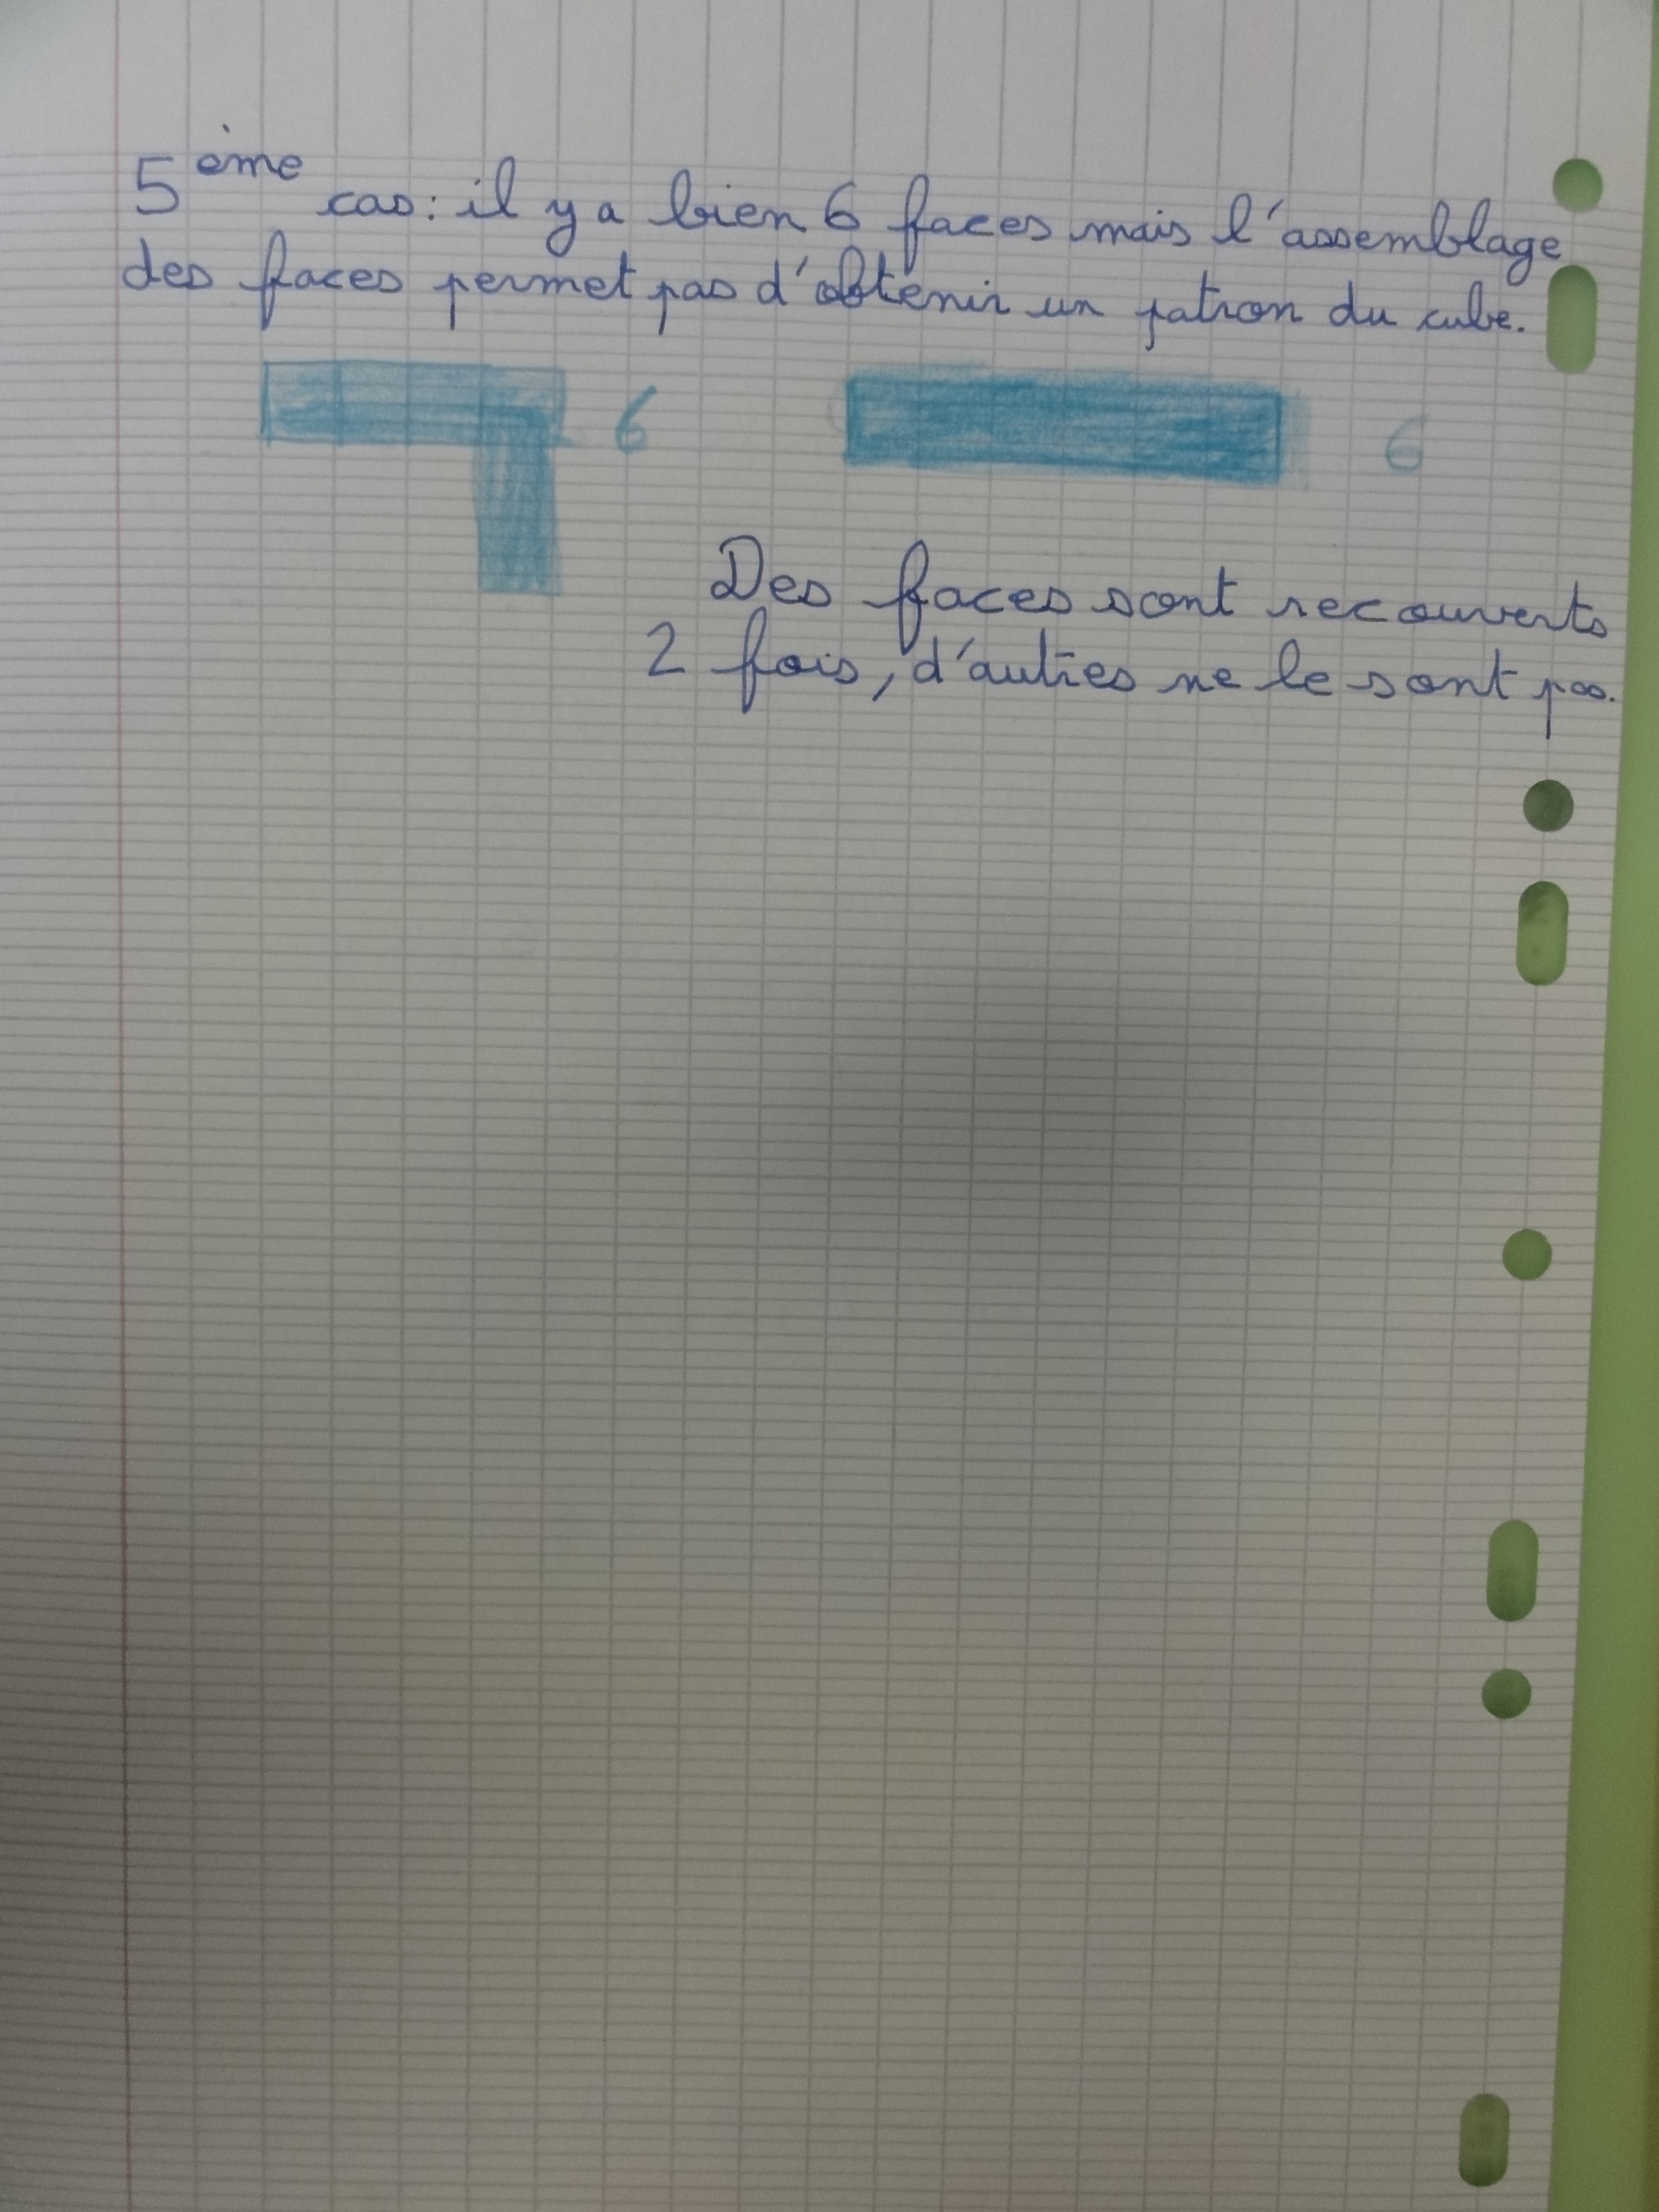 5ème cas: il y a bien 6 faces mais l'assemblage
des faces permet pas d'obtenir un patron du cube.
6 6
Des faces sont recouverts
2 fois, d'autres ne le sont pas.